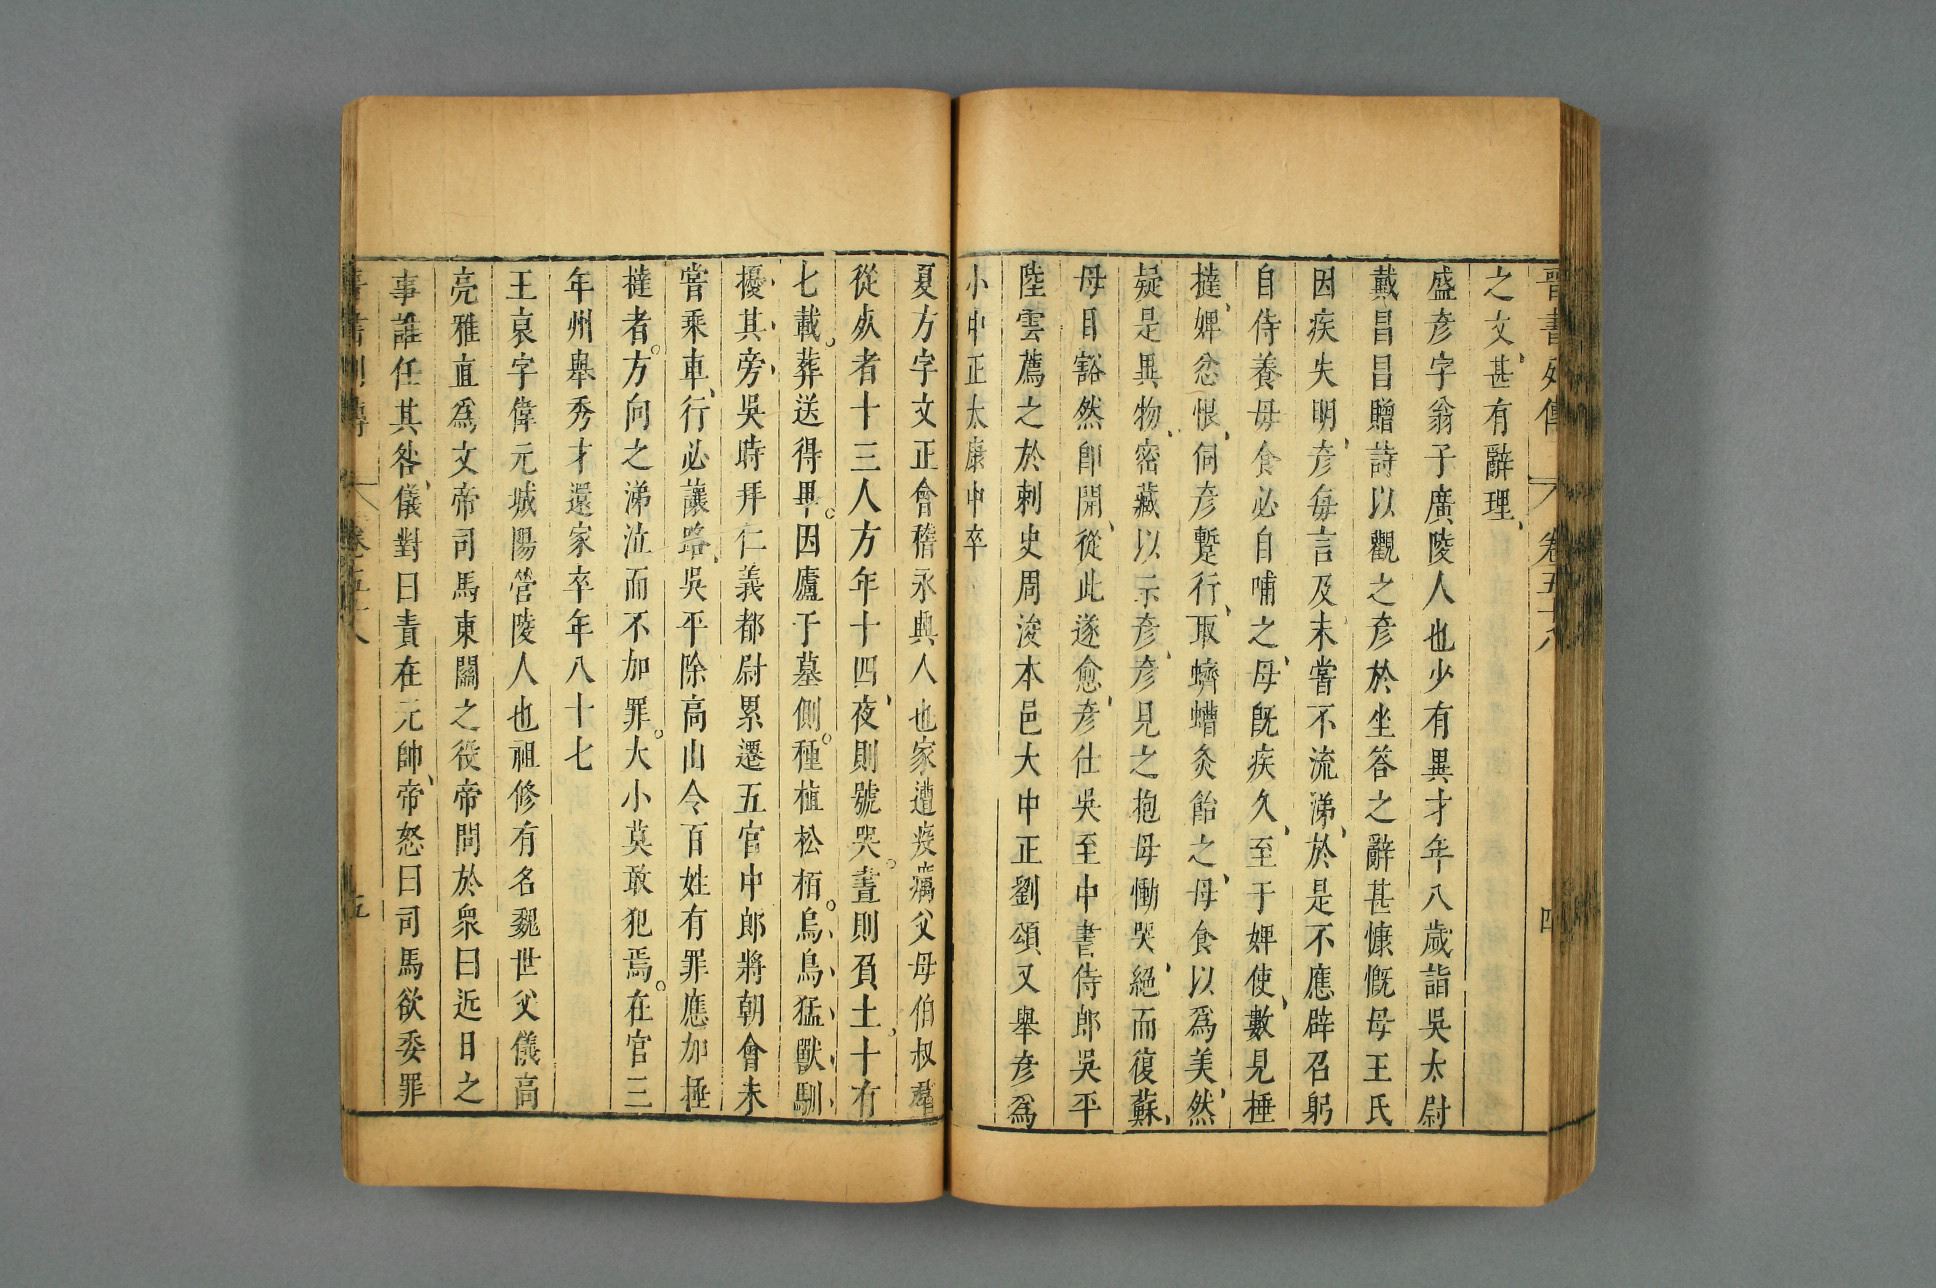 晉書列傳 卷五十八 四
之文甚有辭理
盛彥字翁子廣陵人也少有異才年八歲詣吳太尉
戴昌昌贈詩以觀之彥於坐答之辭甚慷慨母王氏
因疾失明彥每言及未嘗不流涕於是不應辟召躬
自侍養母食必自哺之母旣疾久至于婢使數見捶
撻婢忿恨伺彥蹔行取蠐螬灸飴之母食以爲美然
疑是異物密藏以示彥彥見之抱母慟哭絕而復蘇
母目豁然卽開從此遂愈彥仕吳至中書侍郎吳平
陸雲薦之於刺史周浚本邑大中正劉頌又舉彥爲
小中正太康中卒
夏方字文正會稽永興人也家遭疫癘父母伯叔羣
從死者十三人方年十四夜則號哭晝則負土十有
七載葬送得畢因廬于墓側種植松栢烏鳥猛獸馴
擾其旁吳時拜仁義都尉累遷五官中郎將朝會未
嘗乘車行必讓路吳平除高山令百姓有罪應加捶
撻者方向之涕泣而不加罪大小莫敢犯焉在官三
年州舉秀才還家卒年八十七
王裒字偉元城陽營陵人也祖修有名魏世父儀高
亮雅直爲文帝司馬東關之役帝問於衆曰近日之
事誰任其咎儀對曰責在元帥帝怒曰司馬欲委罪
晉書列傳 卷五十八 五